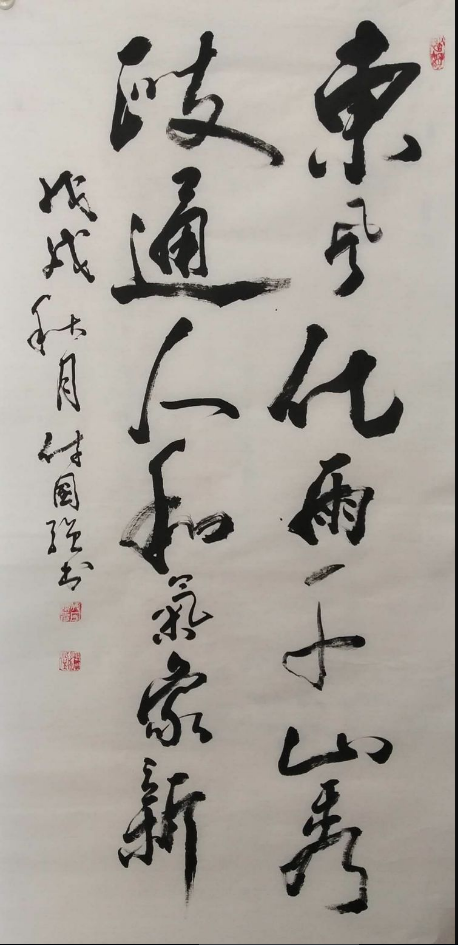 東风化雨千山秀
政通人和氣象新
戊戌秋月付國强书